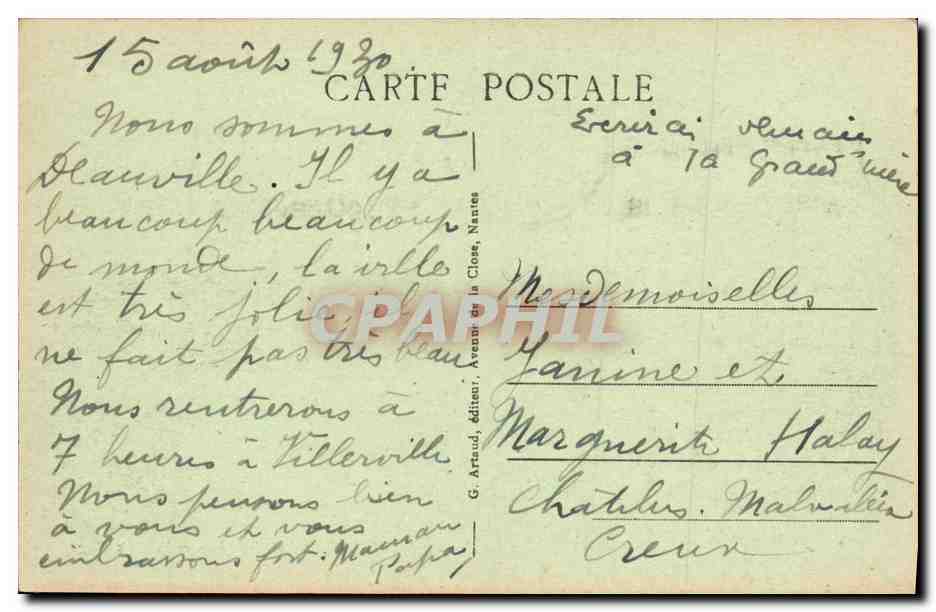 15 août 1930
CARTE POSTALE
Nous sommes à
Deauville. Il y a
beaucoup beaucoup
de monde, la ville
est très jolie, il
ne fait pas très beau
Nous rentrerons à
7 heures à Villerville
Nous pensons bien
à vous et vous
embrassons fort. Maman
Papa
G. Artaud, éditeur, Avenue de la Close, Nantes
Ecrirai demain
à ta Grand'mère
Mesdemoiselles
Janine et
Marguerite Halay
Châtelus. Malvaleix
Creuse
CPAPHIL